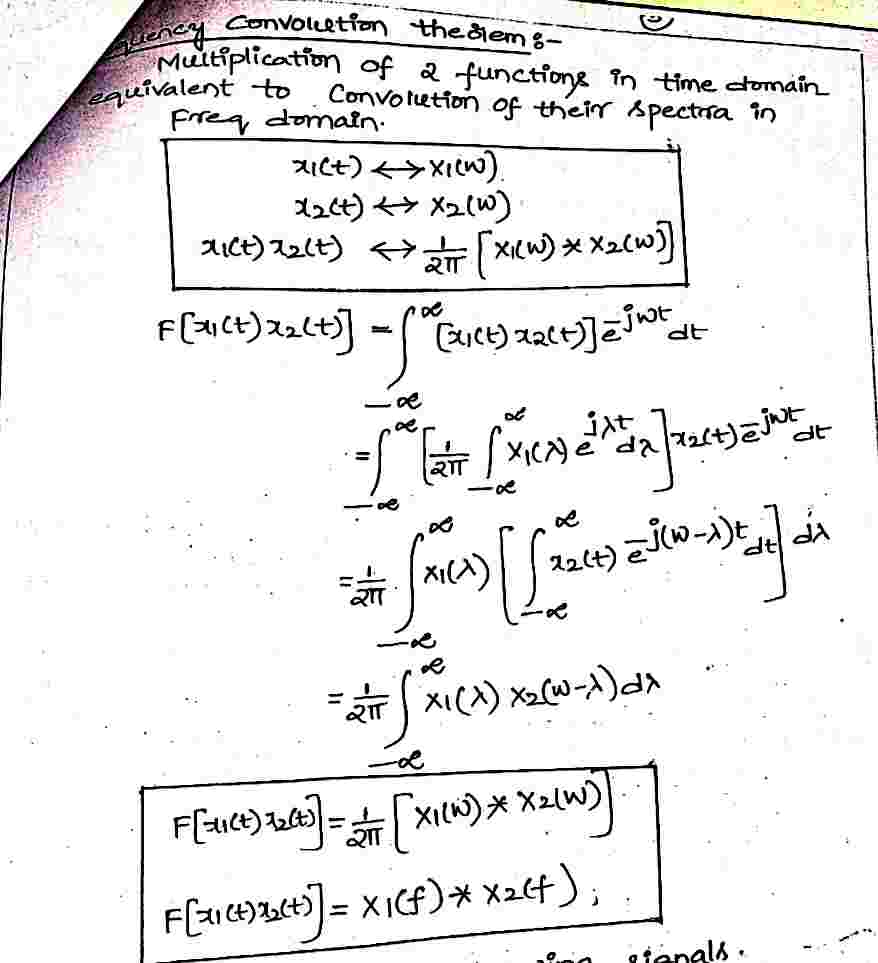 Convolution theorem :-
Multiplication of 2 functions in time domain
equivalent to Convolution of their spectra in
Freq domain.
x1(t) ↔ X1(w)
x2(t) ↔ X2(w)
x1(t) x2(t) ↔ 1/2π [X1(w) * X2(w)]
F[x1(t) x2(t)] = ∫_{-∞}^{∞} [x1(t) x2(t)] e^{-jwt} dt
= ∫_{-∞}^{∞} [1/2π ∫_{-∞}^{∞} X1(λ) e^{jλt} dλ] x2(t) e^{-jwt} dt
= 1/2π ∫_{-∞}^{∞} X1(λ) [∫_{-∞}^{∞} x2(t) e^{-j(w-λ)t} dt] dλ
= 1/2π ∫_{-∞}^{∞} X1(λ) X2(w-λ) dλ
F[x1(t) x2(t)] = 1/2π [X1(w) * X2(w)]
F[x1(t) x2(t)] = X1(f) * X2(f);
signals.